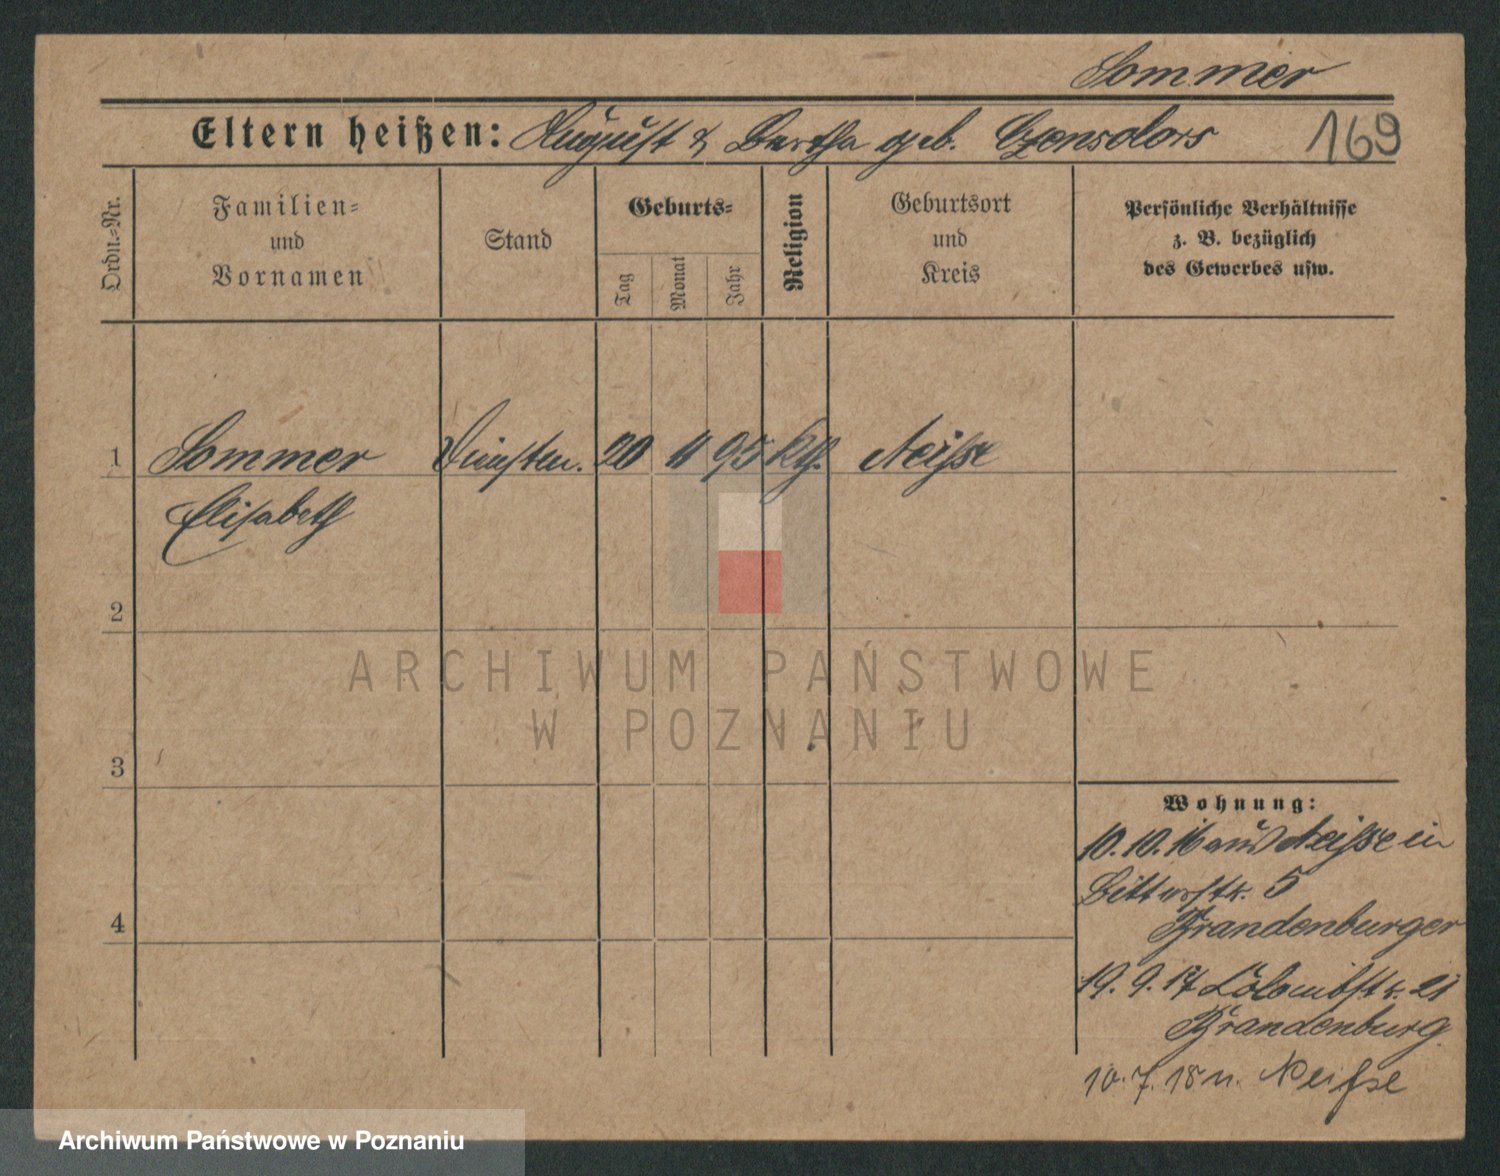 Sommer
Eltern heißen: August & Bertha geb.
169
Ordn.-Nr.
Familien-
und
Vornamen
Stand
Geburts-
Tag
Monat
Jahr
Religion
Geburtsort
und
Kreis
Persönliche Verhältnisse
z. B. bezüglich
des Gewerbes usw.
1 Sommer 20 11 95 kth. Neisse
Elisabeth
2
3
4
ARCHIWUM PAŃSTWOWE
W POZNANIU
Wohnung:
10. 10. 16 aus Neisse in
5
Brandenburger
19. 9. 17 21
Brandenburg
10. 7. 18 n. Neisse
Archiwum Państwowe w Poznaniu